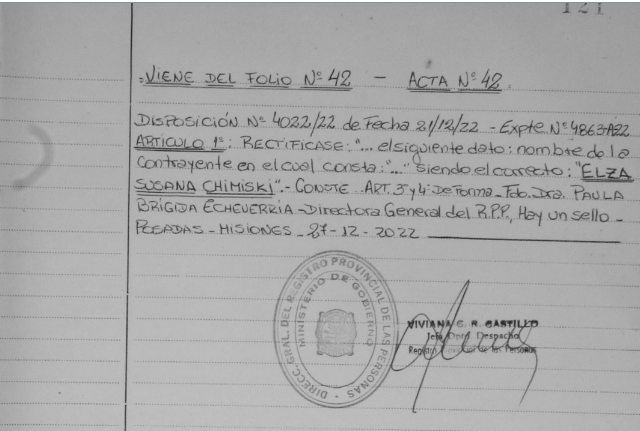 121
VIENE DEL FOLIO Nº 42 - ACTA Nº 42.
DISPOSICIÓN Nº 4022/22 de Fecha 21/12/22 - Expte. Nº 4863-A22
ARTICULO 1º: RECTIFICASE: "... el siguiente dato: nombre de la
Contrayente en el cual consta: "..." siendo el correcto: "ELZA
SUSANA CHIMISKI".- CONSTE. ART. 3 y 4: De Forma - Fdo. Dra. PAULA
BRIGIDA ECHEVERRIA - Directora General del R.P.P., Hay un sello -
POSADAS - MISIONES - 27-12-2022
DIRECC. GRAL. DEL REGISTRO PROVINCIAL DE LAS PERSONAS
MINISTERIO DE GOBIERNO
VIVIANA C. R. CASTILLO
Jefe Dpto. Despacho
Registro Provincial de las Personas